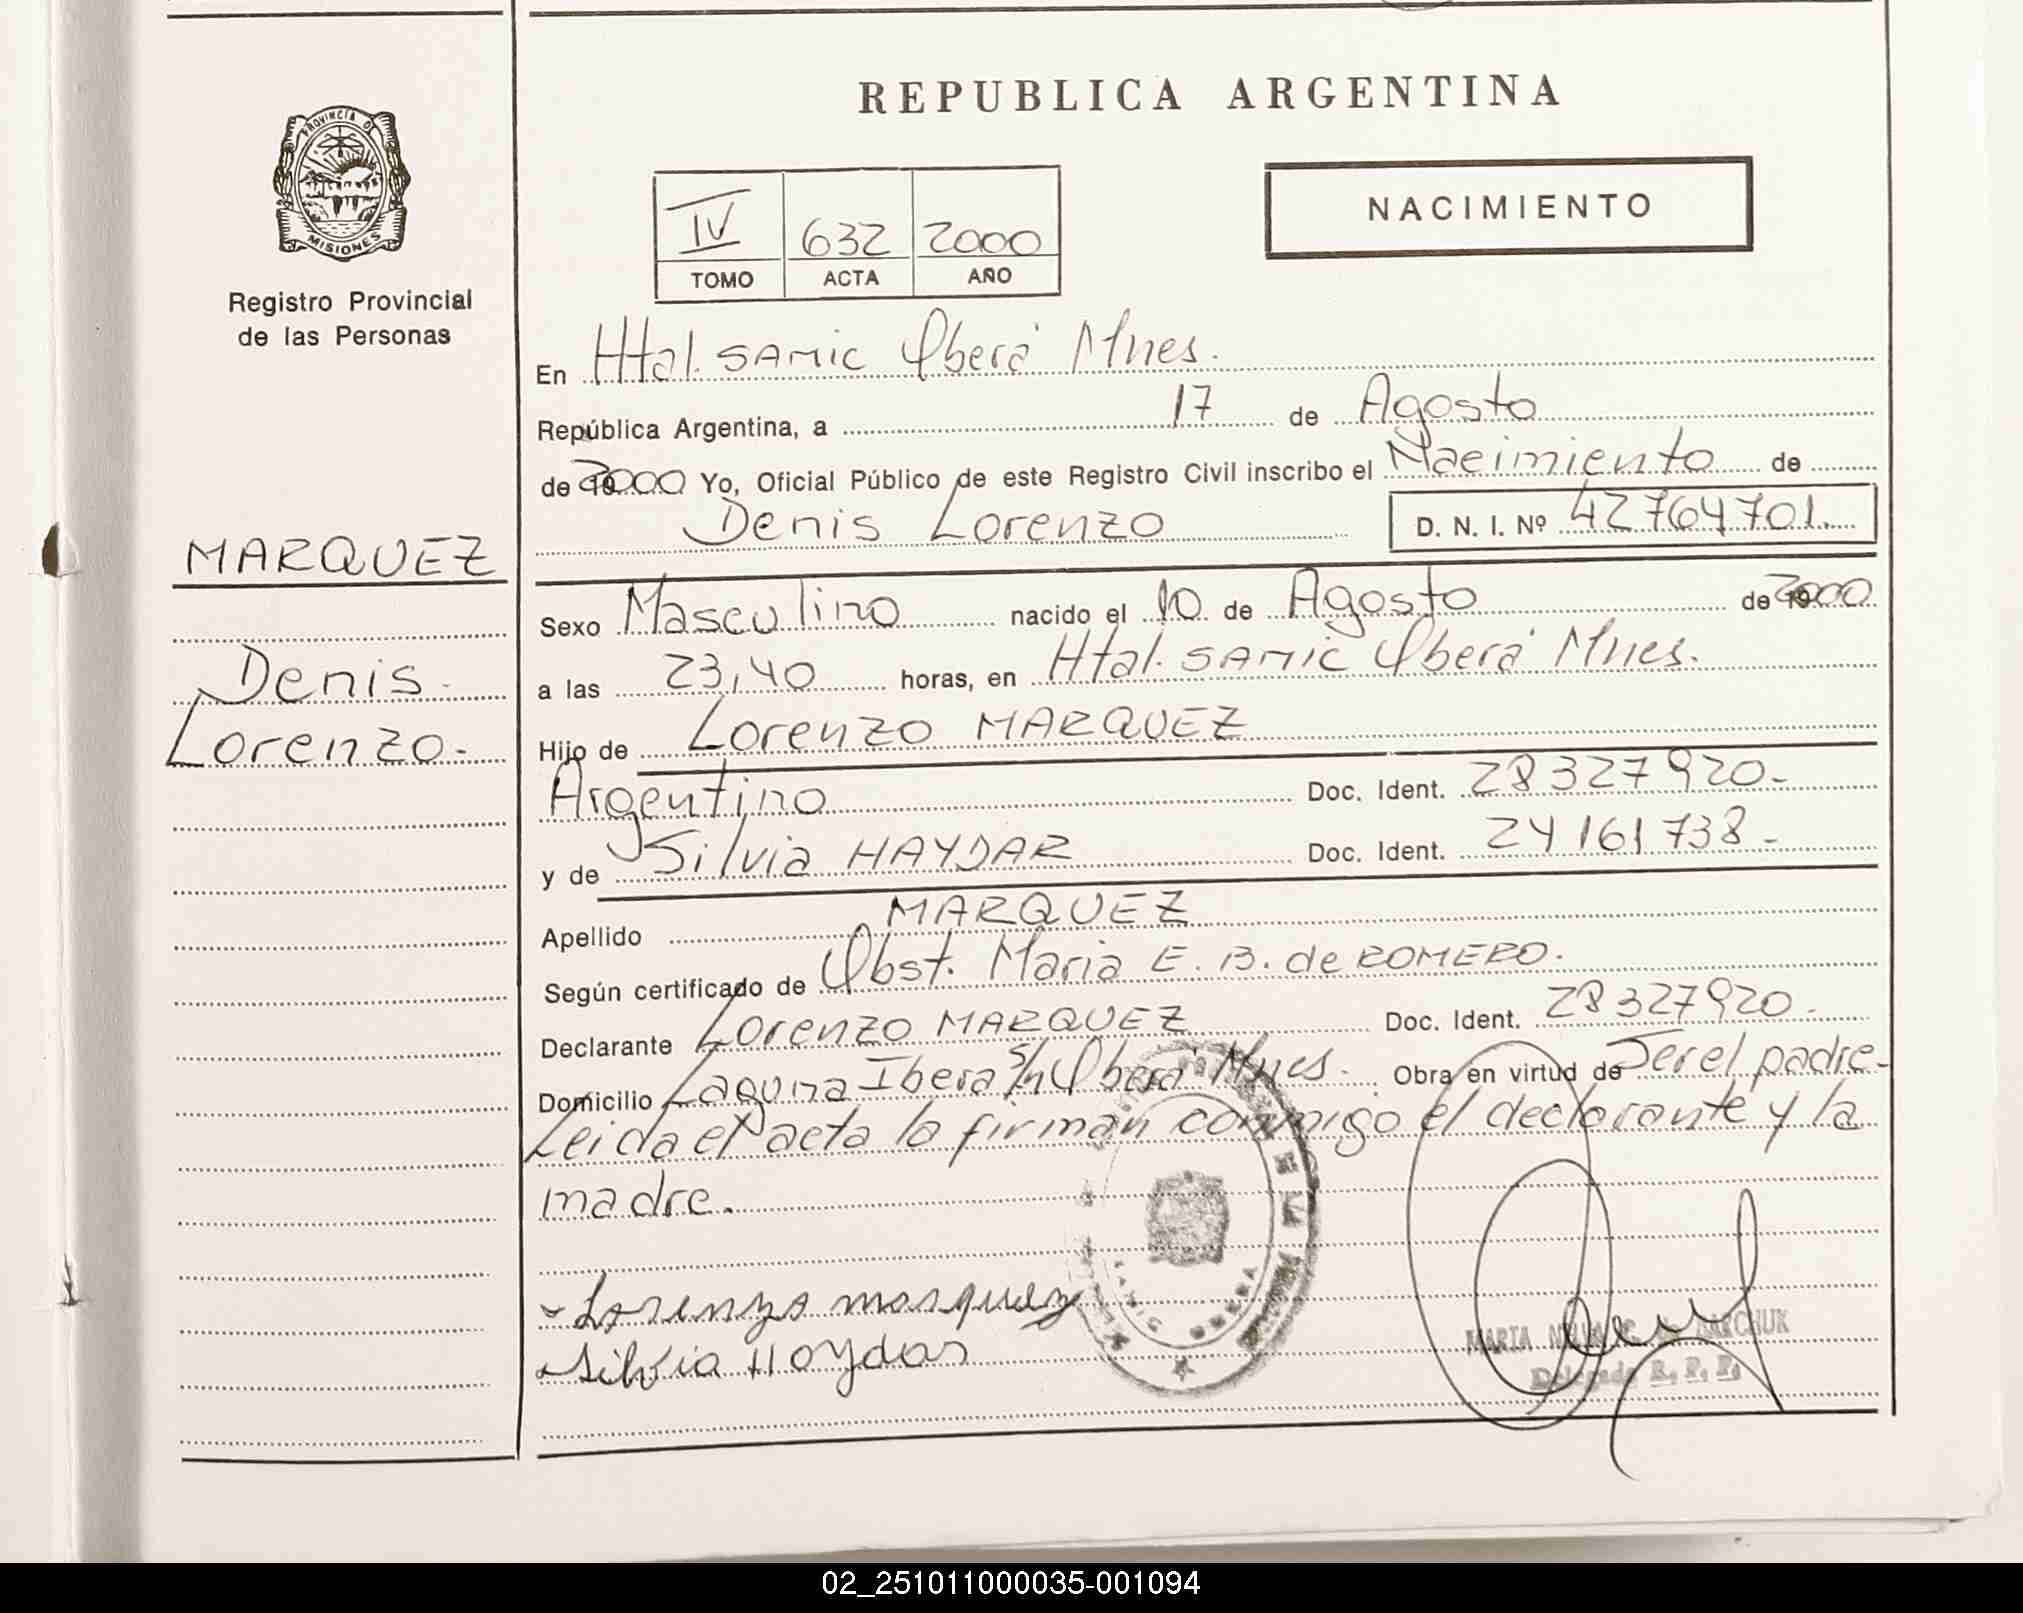 REPUBLICA ARGENTINA
PROVINCIA DE
MISIONES
Registro Provincial
de las Personas
NACIMIENTO
IV 632 2000
TOMO ACTA AÑO
En Htal. SAMIC Oberá Mnes.
República Argentina, a 17 de Agosto
de 2000 Yo, Oficial Público de este Registro Civil inscribo el Nacimiento de
Denis Lorenzo D. N. I. Nº 42764701.
MARQUEZ
Denis
Lorenzo-
Sexo Masculino nacido el 10 de Agosto de 2000
a las 23,40 horas, en Htal. SAMIC Oberá Mnes.
Hijo de Lorenzo MARQUEZ
Argentino Doc. Ident. 28327920-
y de Silvia HAYDAR Doc. Ident. 24161738-
Apellido MARQUEZ
Según certificado de Obst. Maria E. B. de ROMERO.
Declarante Lorenzo MARQUEZ Doc. Ident. 28327920-
Domicilio Laguna Ibera S/n Oberá Mnes. Obra en virtud de Ser el padre-
Leida el acta la firman conmigo el declarante y la
madre.
- Lorenzo marquez
- Silvia Haydar
OBERA
MARIA
Delegada R. P. P.
02_251011000035-001094